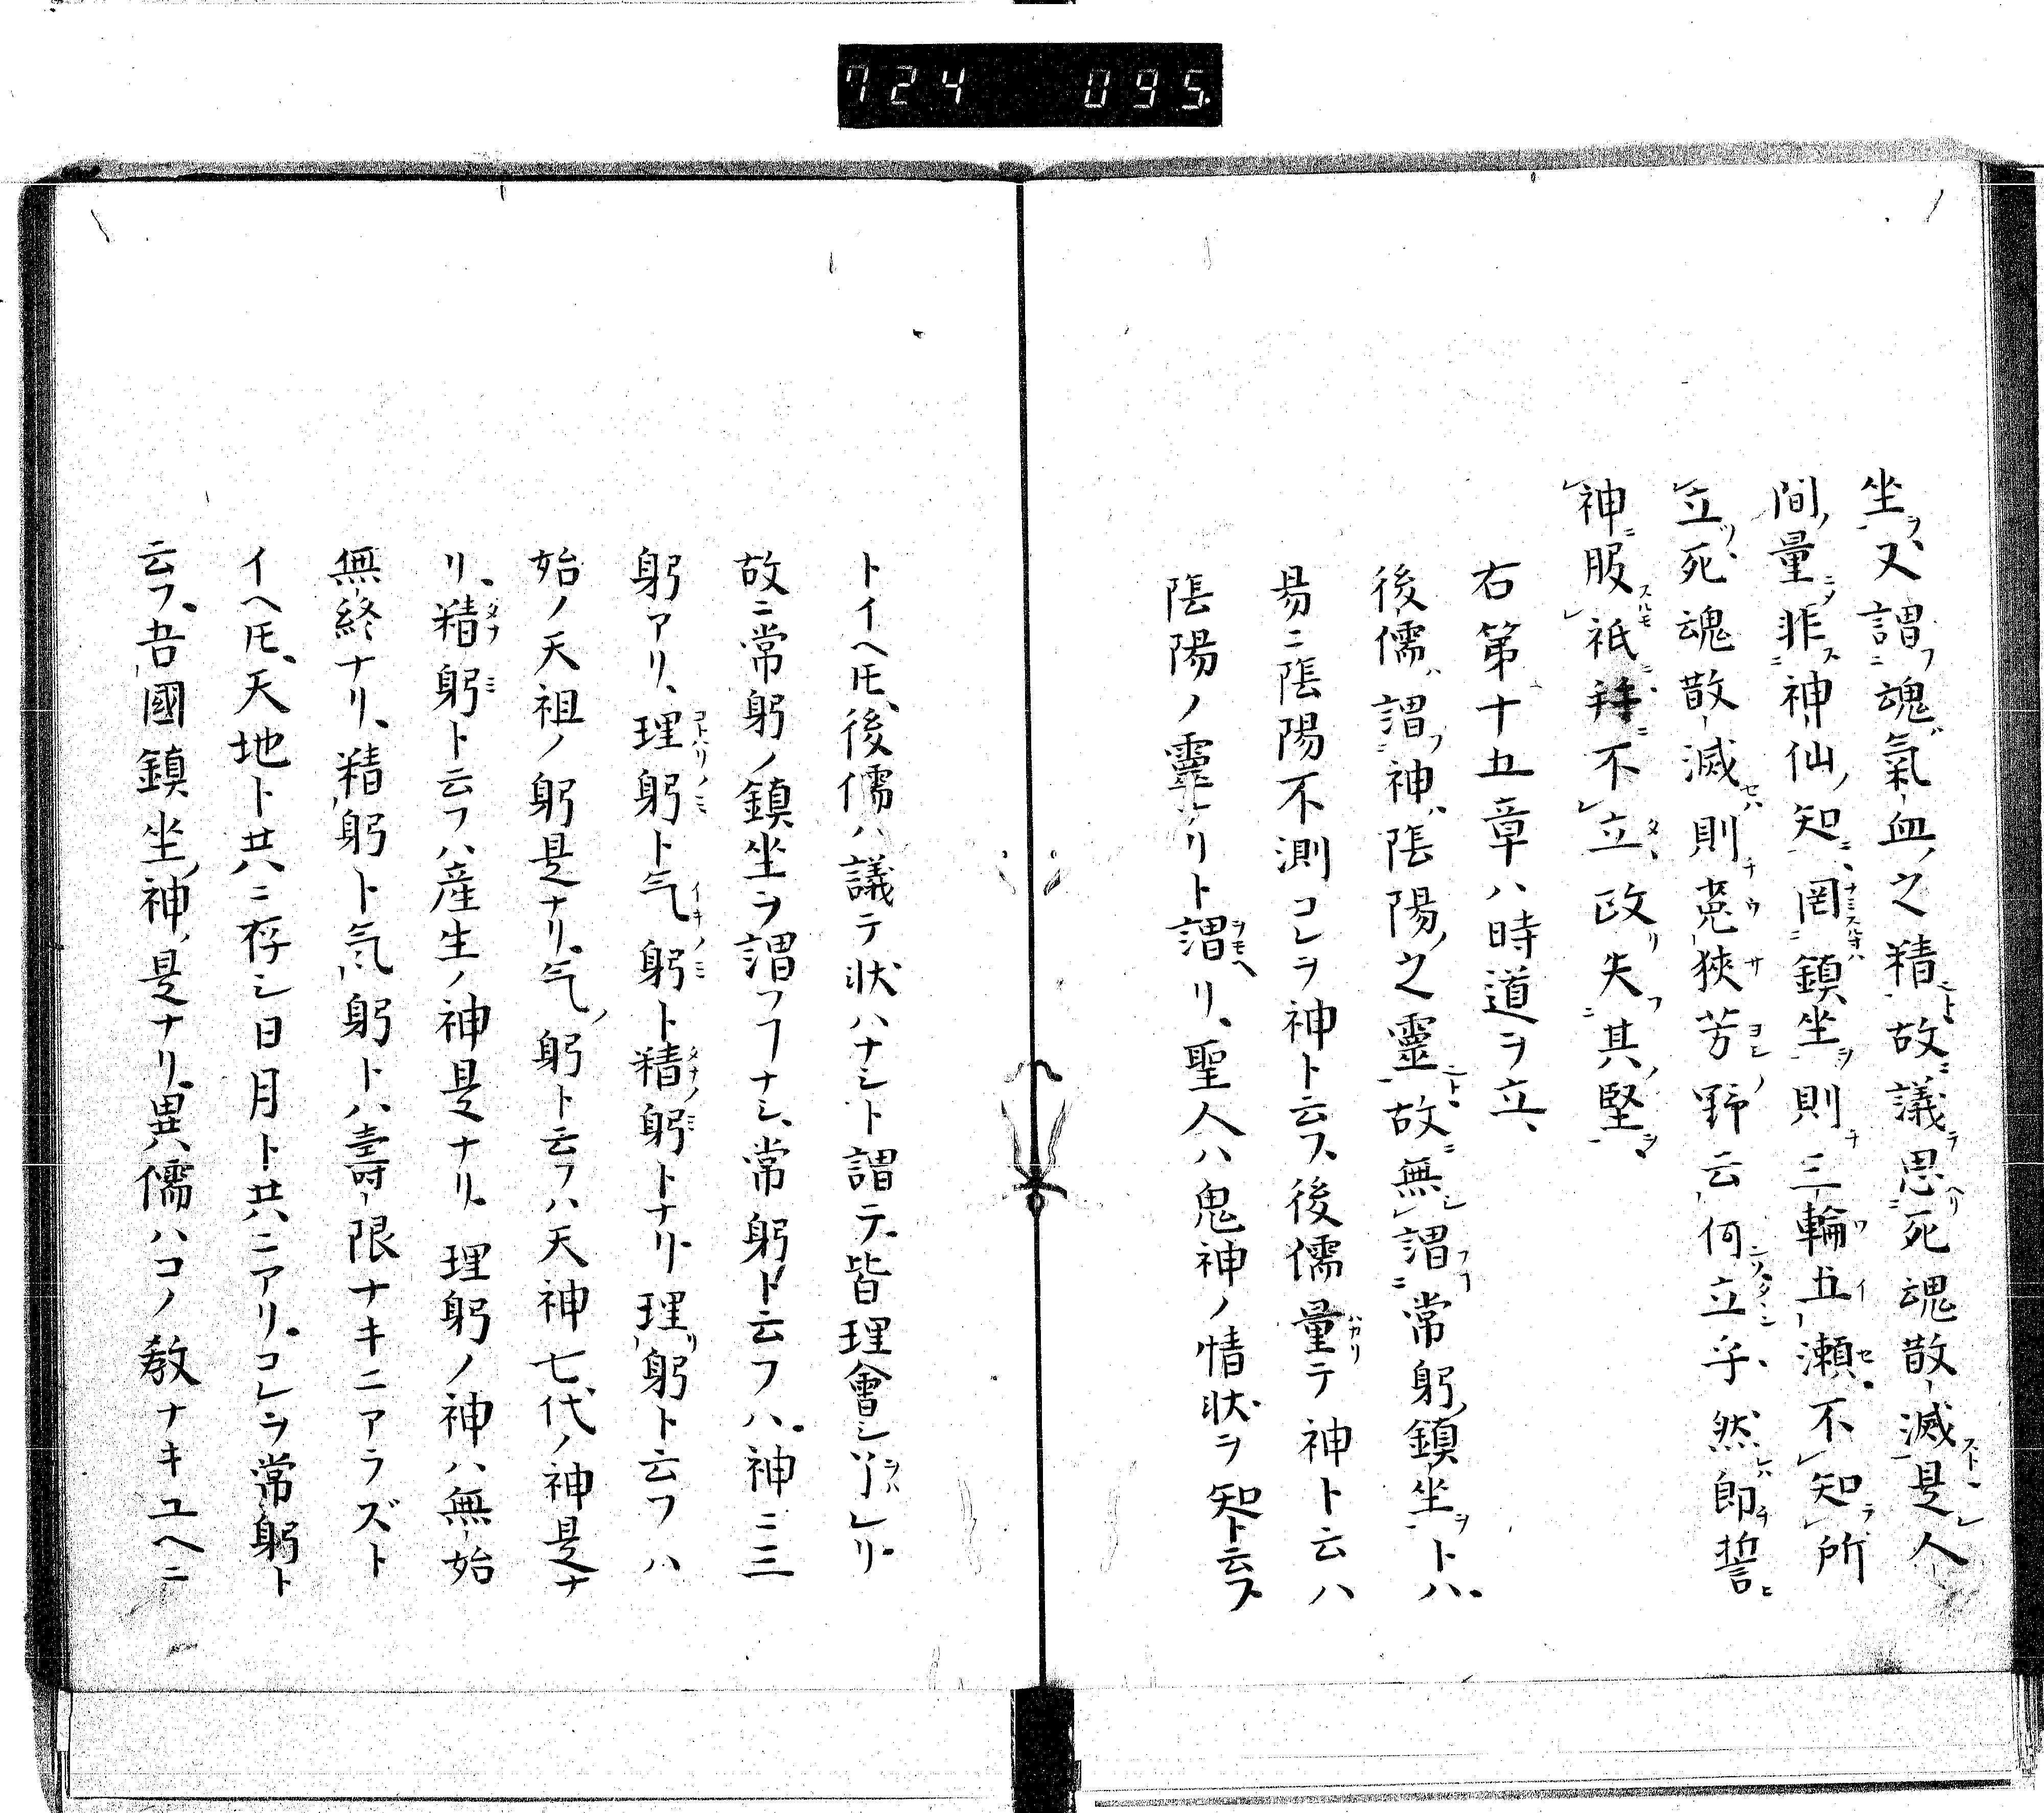 724 095.
坐又謂魂氣血之精故議思死魂散滅是人
間量非神仙知罔鎮坐則三輪五瀬不知所
立死魂散滅則菟狹芳野云何立乎然即誓
神服祇不立政失其堅
右第十五章ハ時道ヲ立
後儒謂神陰陽之靈故無謂常躬鎮坐トハ
昜ニ陰陽不測コレヲ神ト云フ後儒量テ神ト云ハ
陰陽ノ靈ナリト謂リ聖人ハ鬼神ノ情状ヲ知ト云フ
トイヘ𪜈後儒ハ議テ状ハナシト謂テ皆理會シ了レリ
故ニ常躬ノ鎮坐ヲ謂フヿナシ常躬ト云フハ神ニ三
躬アリ理躬ト气躬ト精躬トナリ理躬ト云フハ
始ノ天祖ノ躬是ナリ气躬ト云フハ天神七代ノ神是ナ
リ精躬ト云フハ産生ノ神是ナリ理躬ノ神ハ無始
無終ナリ精躬ト気躬トハ壽限ナキニアラズト
イヘ𪜈天地ト共ニ存シ日月ト共ニアリコレヲ常躬ト
云フ吾國鎮坐神是ナリ異儒ハコノ教ナキユヘニ